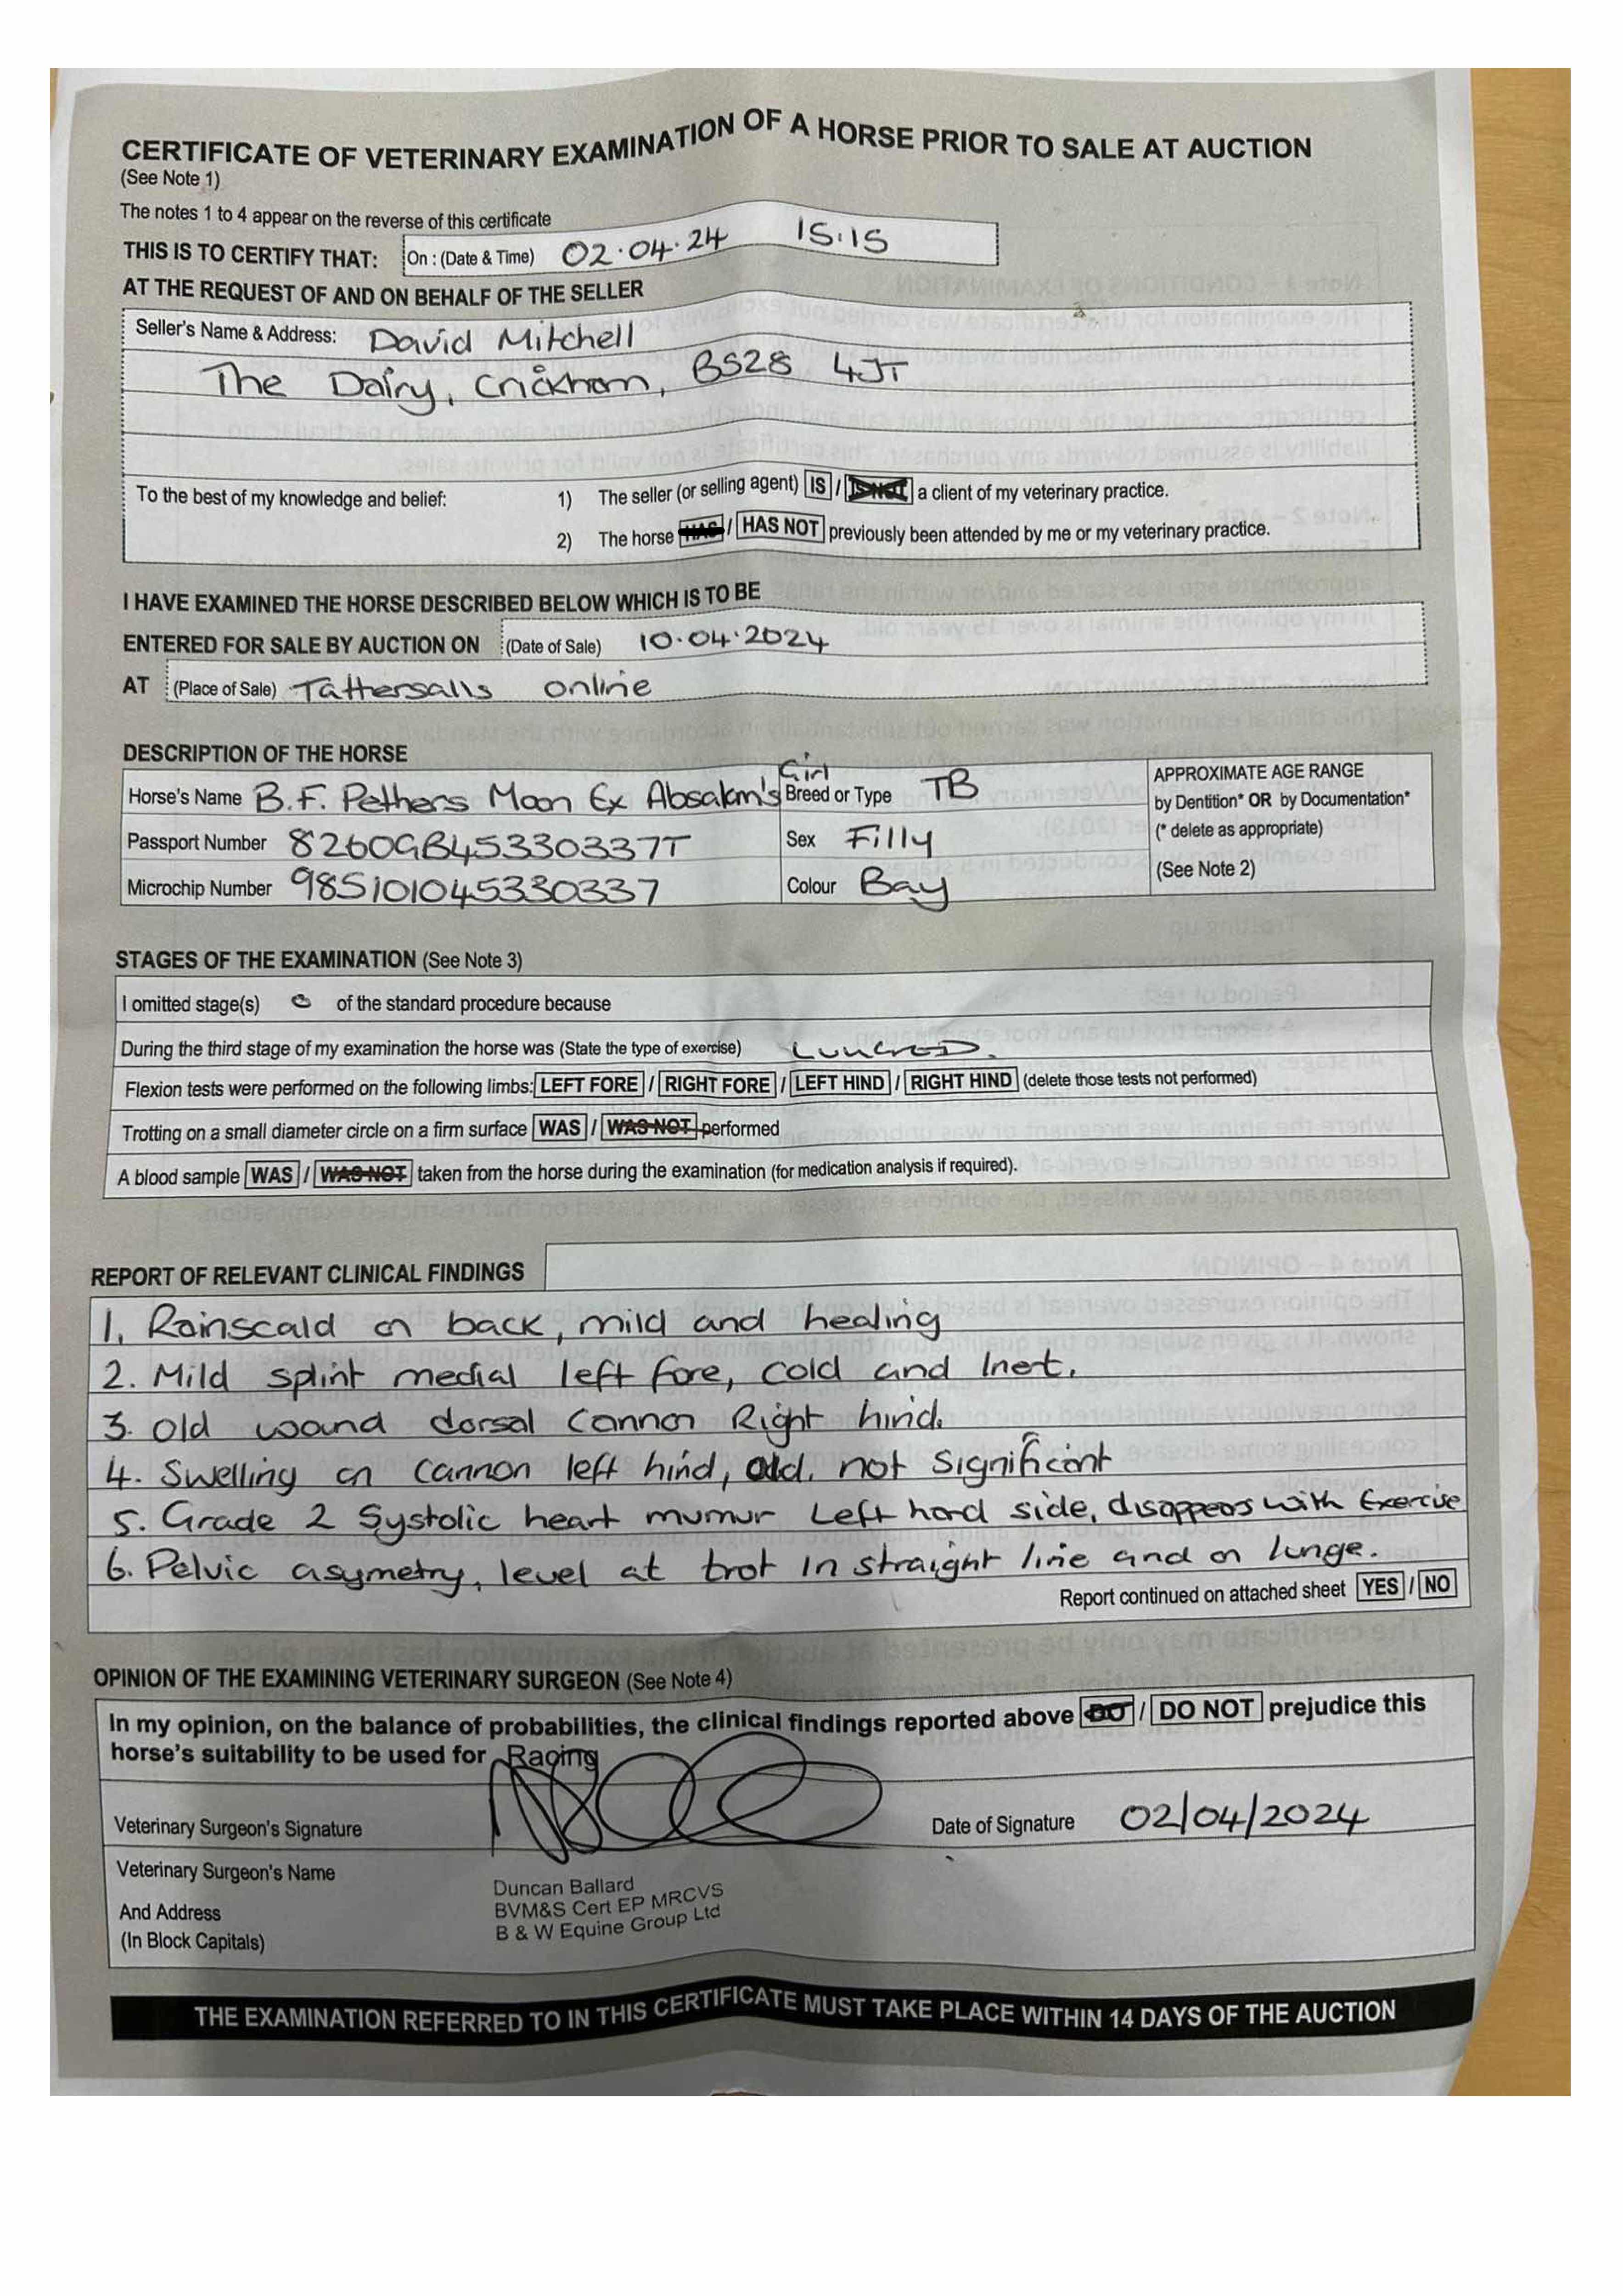 CERTIFICATE OF VETERINARY EXAMINATION OF A HORSE PRIOR TO SALE AT AUCTION
(See Note 1)
The notes 1 to 4 appear on the reverse of this certificate
THIS IS TO CERTIFY THAT: On : (Date & Time) 02.04.24 15:15
AT THE REQUEST OF AND ON BEHALF OF THE SELLER
Seller's Name & Address: David Mitchell
The Dairy, Crickham, BS28 4JT
To the best of my knowledge and belief: 1) The seller (or selling agent) IS / IS NOT a client of my veterinary practice.
2) The horse HAS / HAS NOT previously been attended by me or my veterinary practice.
I HAVE EXAMINED THE HORSE DESCRIBED BELOW WHICH IS TO BE
ENTERED FOR SALE BY AUCTION ON (Date of Sale) 10.04.2024
AT (Place of Sale) Tattersalls online
DESCRIPTION OF THE HORSE
Horse's Name B.F. Pethers Moon Ex Absalom's Girl Breed or Type TB
Passport Number 826OGB45330337T Sex Filly
Microchip Number 985101045330337 Colour Bay
APPROXIMATE AGE RANGE
by Dentition* OR by Documentation*
(* delete as appropriate)
(See Note 2)
STAGES OF THE EXAMINATION (See Note 3)
I omitted stage(s) of the standard procedure because
During the third stage of my examination the horse was (State the type of exercise) LUNGED.
Flexion tests were performed on the following limbs: LEFT FORE / RIGHT FORE / LEFT HIND / RIGHT HIND (delete those tests not performed)
Trotting on a small diameter circle on a firm surface WAS / WAS NOT performed
A blood sample WAS / WAS NOT taken from the horse during the examination (for medication analysis if required).
REPORT OF RELEVANT CLINICAL FINDINGS
1. Rainscald on back, mild and healing
2. Mild splint medial left fore, cold and Inet.
3. old wound dorsal Cannon Right hind.
4. Swelling on cannon left hind, old. not significant
5. Grade 2 Systolic heart mumur Left hand side, disappears with Exercise
6. Pelvic asymetry, level at trot in straight line and on lunge.
Report continued on attached sheet YES / NO
OPINION OF THE EXAMINING VETERINARY SURGEON (See Note 4)
In my opinion, on the balance of probabilities, the clinical findings reported above DO / DO NOT prejudice this
horse's suitability to be used for Racing
Veterinary Surgeon's Signature
Date of Signature 02/04/2024
Veterinary Surgeon's Name
And Address
(In Block Capitals)
Duncan Ballard
BVM&S Cert EP MRCVS
B & W Equine Group Ltd
THE EXAMINATION REFERRED TO IN THIS CERTIFICATE MUST TAKE PLACE WITHIN 14 DAYS OF THE AUCTION